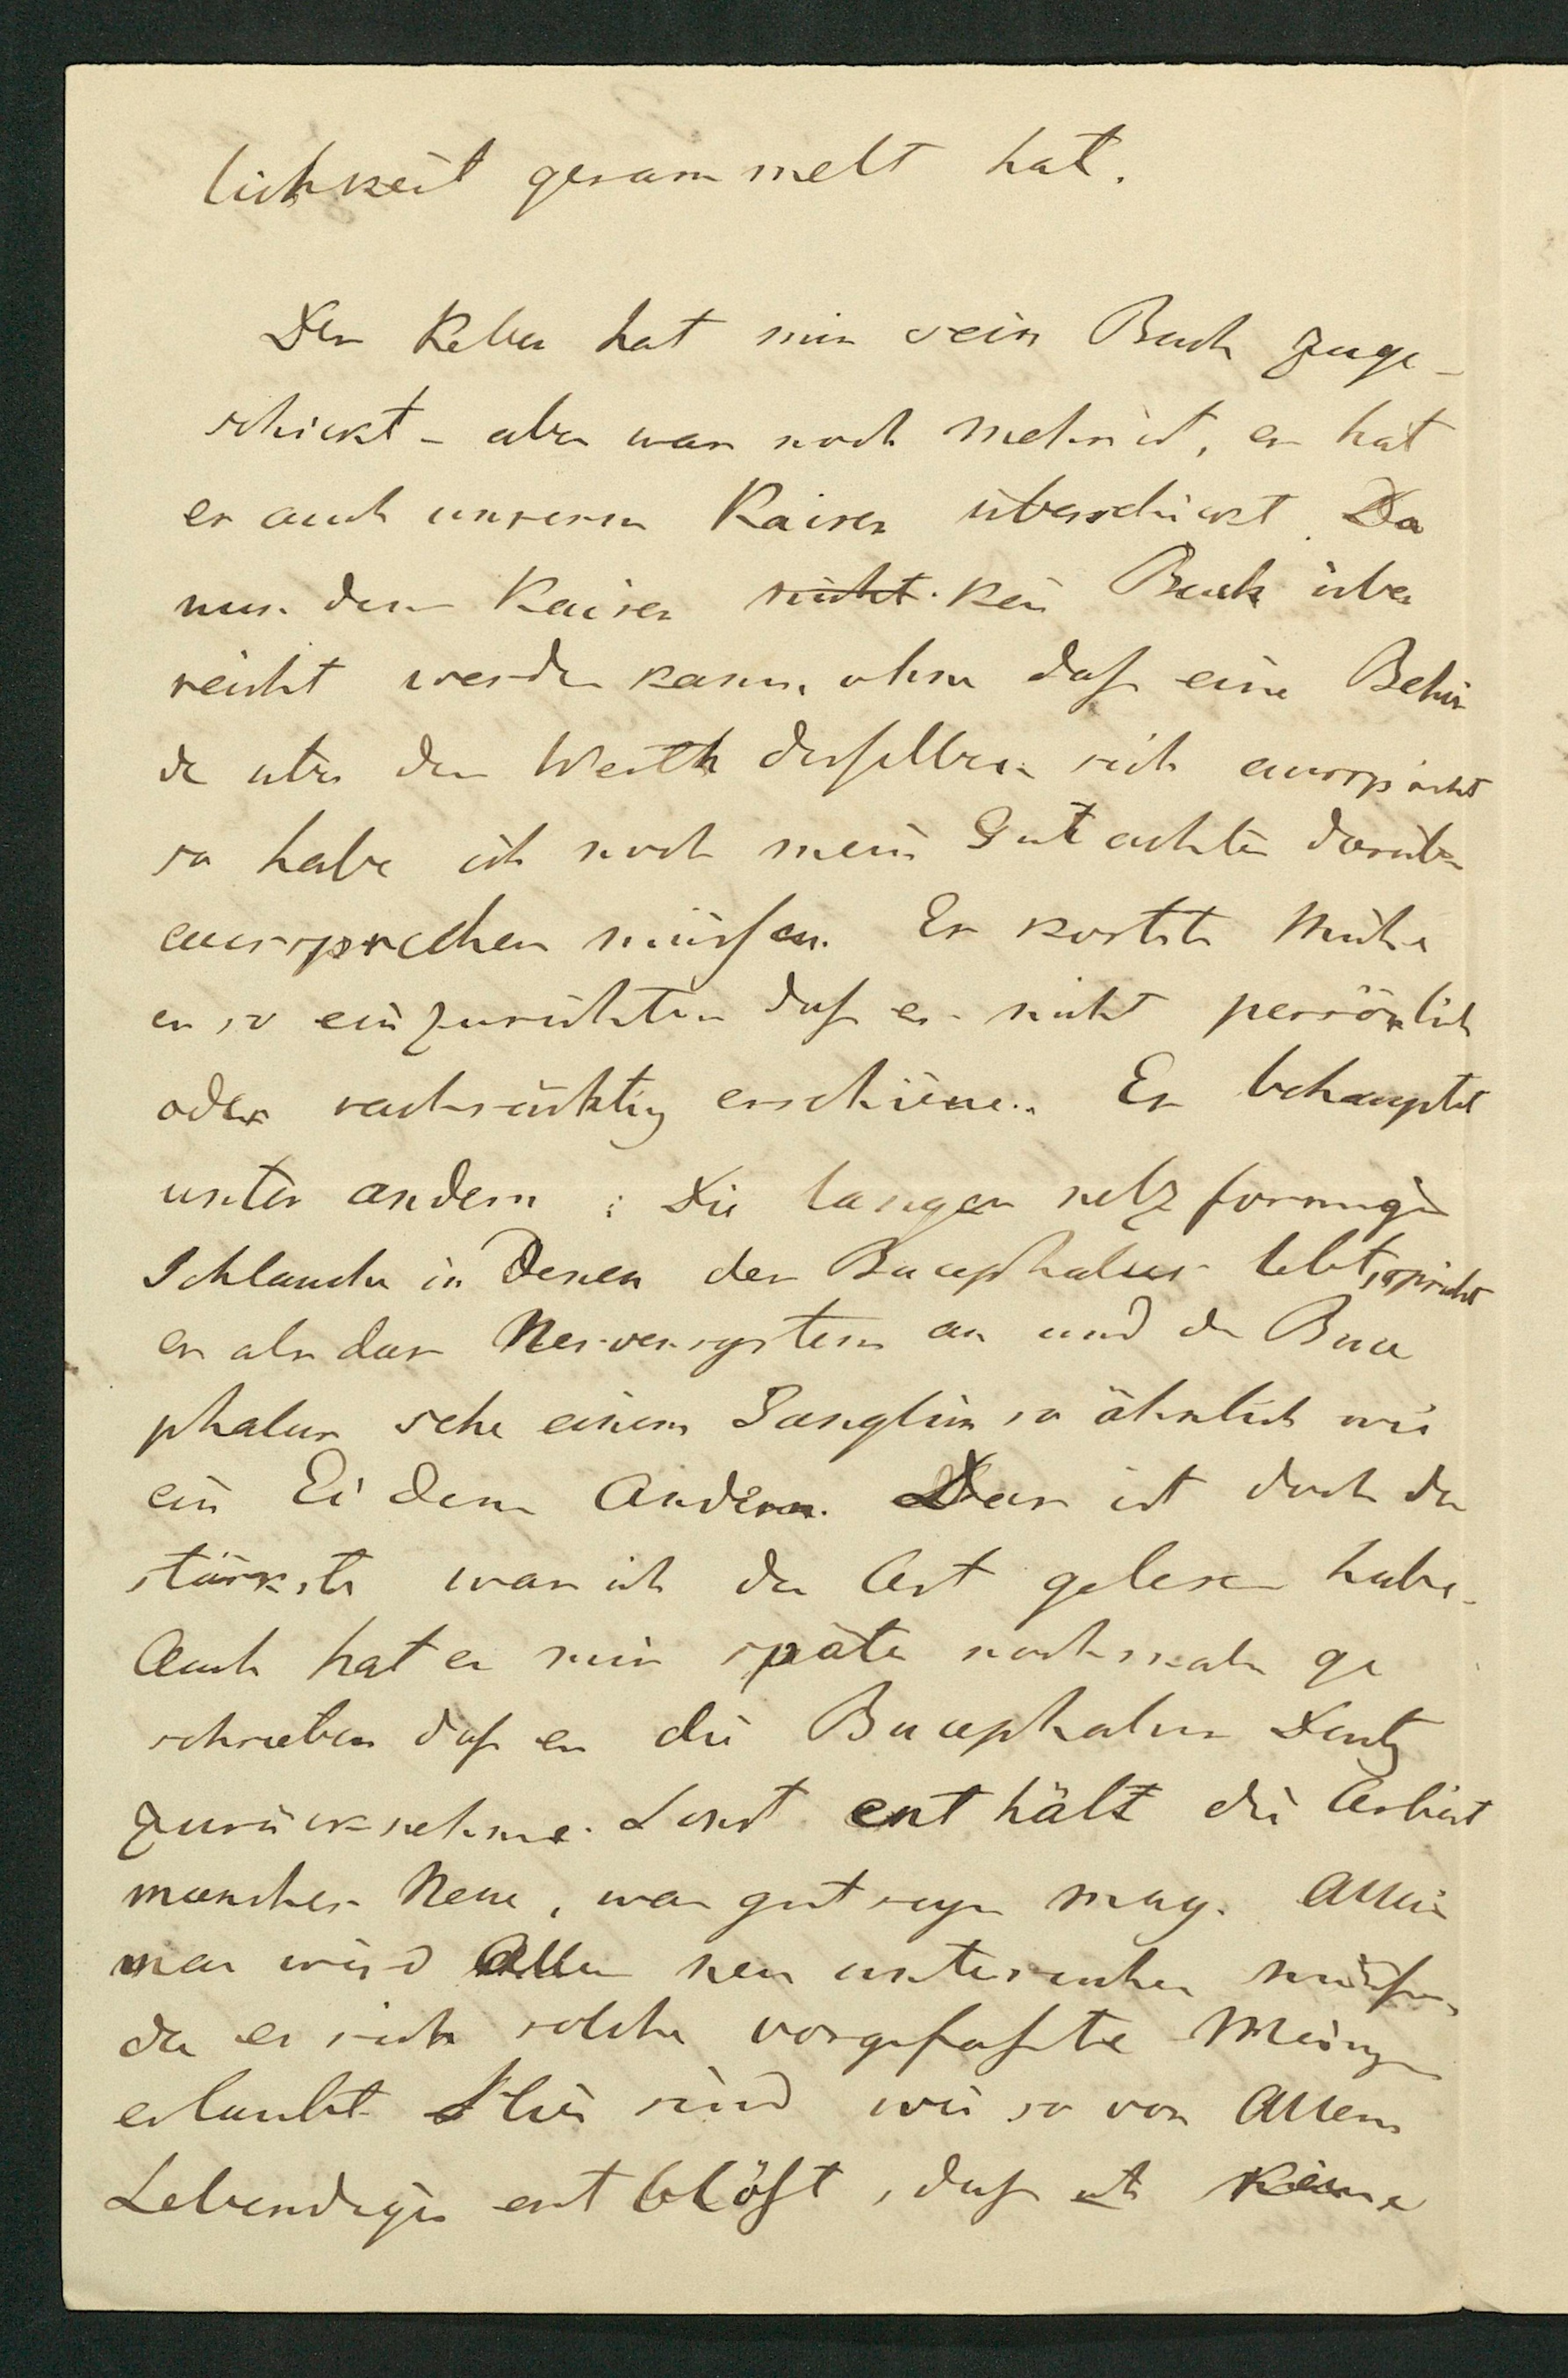 lichkeit gesammelt hat.
Der Keber hat mir sein Buch zuge-
schickt - aber was noch mehr ist, er hat
es auch unserem Kaiser überschickt. Da
nun dem Kaiser nicht kein Buch über
reicht werden kann, ohne daß eine Behör
de über den Werth desselben sich ausspricht
so habe ich noch mein Gutachten darüber
aussprechen müssen. Es kostete Mühe
es so einzurichten daß es nicht persönlich
oder rachsüchtig erschiene. Er behauptet
unter andern : Die langen netzformigen
Schlauche in denen der Bucephalus lebt, spricht
er als das Nervensystem an und der Buce
phalus sehe einem Ganglion so ähnlich wie
ein Ei dem Andern. Das ist doch das
stärkste was ich der Art gelesen habe.
Auch hat er mir später nochmals ge
schrieben daß er die Bucephalus
zurücknehme. Sonst enthält die Arbeit
manches Neue, was gut seyn mag. Allein
man wird Alles neu untersuchen müssen,
da er sich solche vorgefaßte Meinungen
erlaubt. Hier sind wir so von Allem
Lebendigen entblößt, daß ich keine